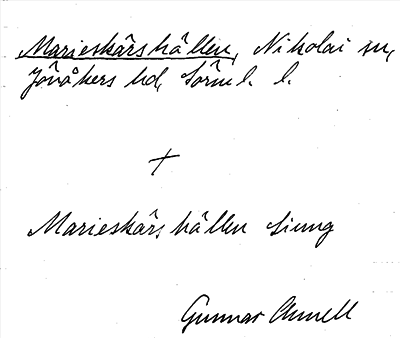 Marieskärshällen, Nikolai sn,
Jönåkers hd, Sörml. l.
+
Marieskärshällen Ljung
Gunnar Ahnell